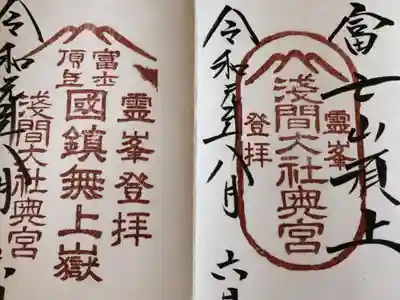 富士山頂上
靈峯
登拝
淺間大社奥宮
六日
令和元年八月
靈峯登拝
富士
頂上
國鎮無上嶽
淺間大社奥宮
令和元年八月